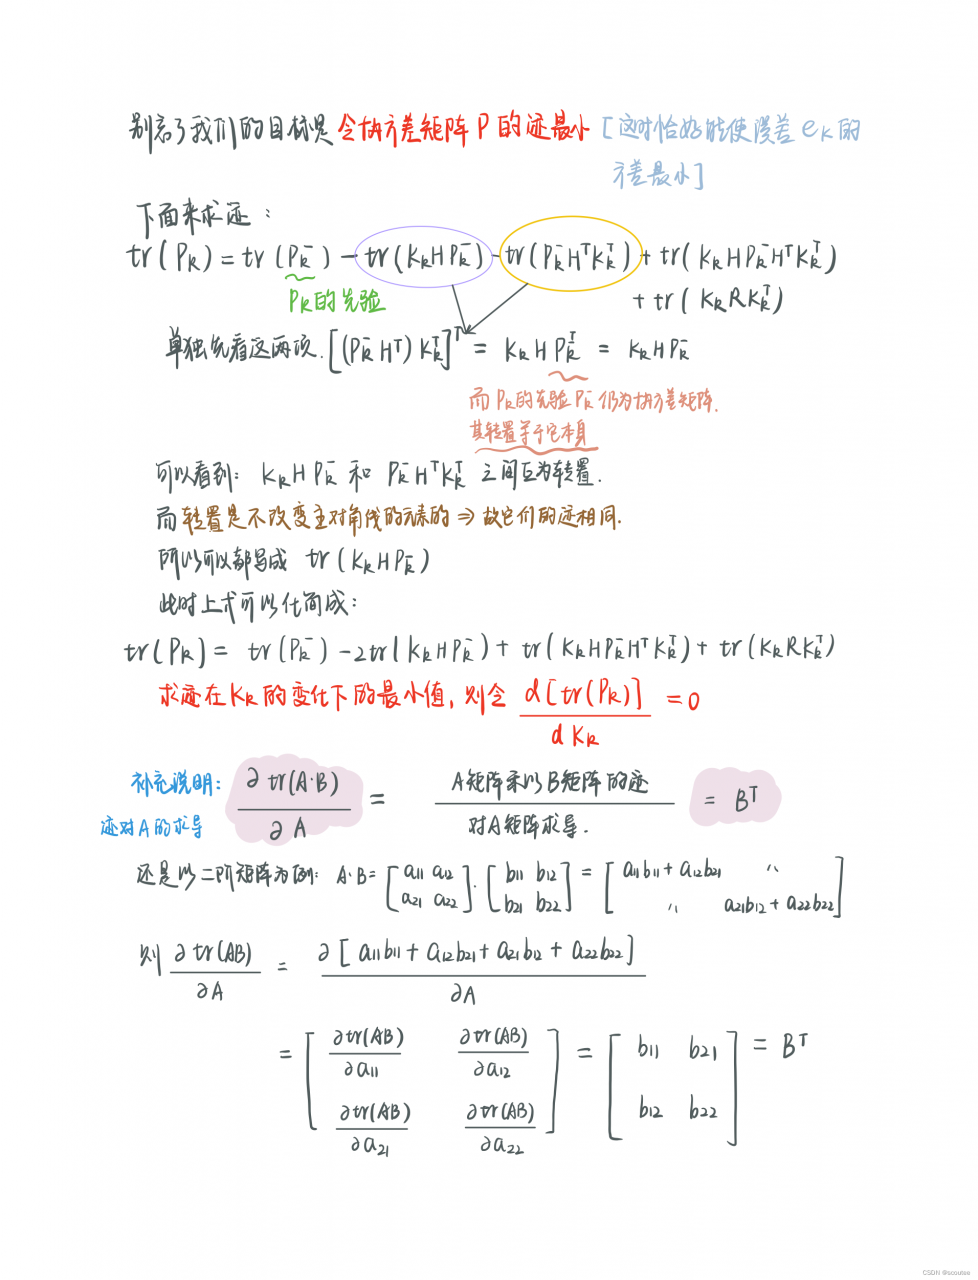 别忘了我们的目标是 令协方差矩阵 P 的迹最小 [这时恰好能使误差 eₖ 的
方差最小]
下面来求迹：
tr(Pₖ) = tr(Pₖ⁻) - tr(KₖHPₖ⁻) - tr(Pₖ⁻HᵀKₖᵀ) + tr(KₖHPₖ⁻HᵀKₖᵀ)
+ tr(KₖRKₖᵀ)
Pₖ的先验
单独先看这两项. [(Pₖ⁻Hᵀ)Kₖᵀ]ᵀ = KₖHPₖ⁻ᵀ = KₖHPₖ⁻
而Pₖ的先验Pₖ⁻仍为协方差矩阵.
其转置等于它本身
可以看到: KₖHPₖ⁻ 和 Pₖ⁻HᵀKₖᵀ 之间互为转置.
而转置是不改变主对角线的元素的 ⇒ 故它们的迹相同.
所以可以都写成 tr(KₖHPₖ⁻)
此时上式可以化简成:
tr(Pₖ] = tr(Pₖ⁻) - 2tr(KₖHPₖ⁻) + tr(KₖHPₖ⁻HᵀKₖᵀ) + tr(KₖRKₖᵀ)
求迹在Kₖ的变化下的最小值, 则令 d[tr(Pₖ)] / dKₖ = 0
补充说明: ∂tr(A·B) / ∂A = A矩阵乘以B矩阵的迹 / 对A矩阵求导. = Bᵀ
迹对A的求导
还是以二阶矩阵为例: A·B = [a₁₁ a₁₂ a₂₁ a₂₂] · [b₁₁ b₁₂ b₂₁ b₂₂] = [a₁₁b₁₁+a₁₂b₂₁ 〃 〃 a₂₁b₁₂+a₂₂b₂₂]
则 ∂tr(AB) / ∂A = ∂[a₁₁b₁₁+a₁₂b₂₁+a₂₁b₁₂+a₂₂b₂₂] / ∂A
= [∂tr(AB)/∂a₁₁ ∂tr(AB)/∂a₁₂ = [b₁₁ b₂₁ = Bᵀ
∂tr(AB)/∂a₂₁ ∂tr(AB)/∂a₂₂] b₁₂ b₂₂]